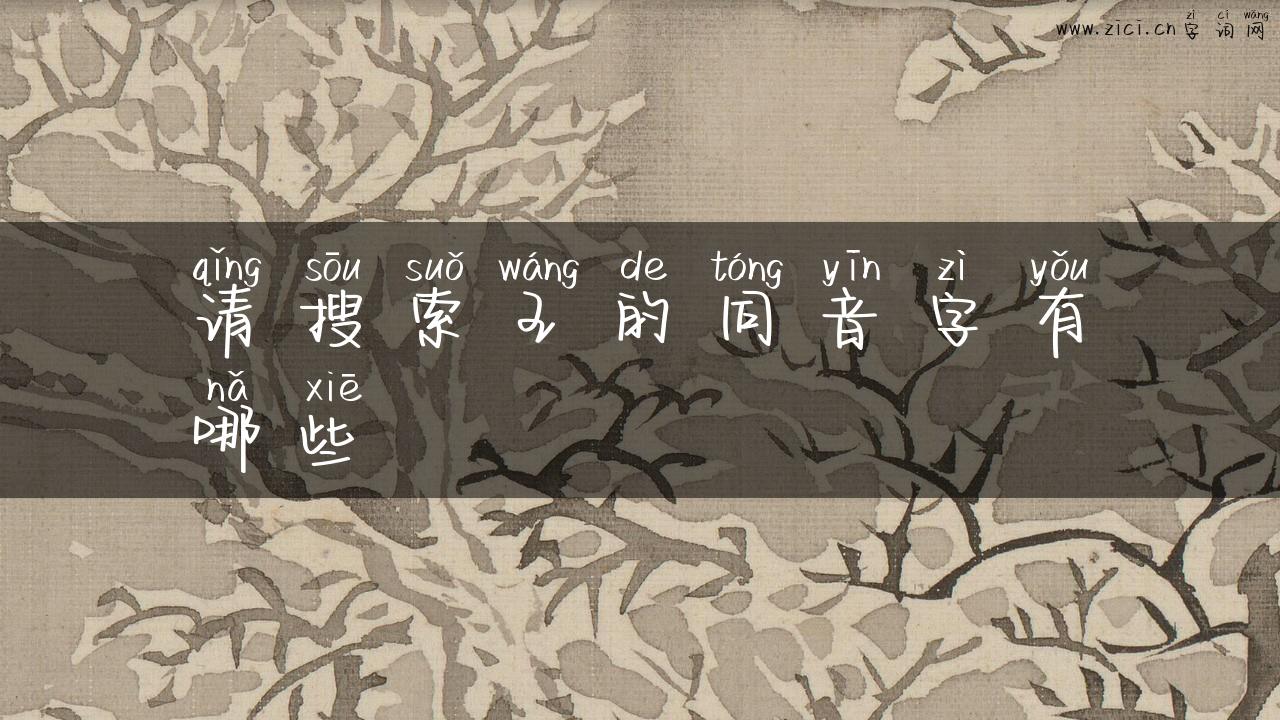 zì cí wǎng
www.zici.cn字词网
qǐng sōu suǒ wáng de tóng yīn zì yǒu
请搜索王的同音字有
nǎ xiē
哪些